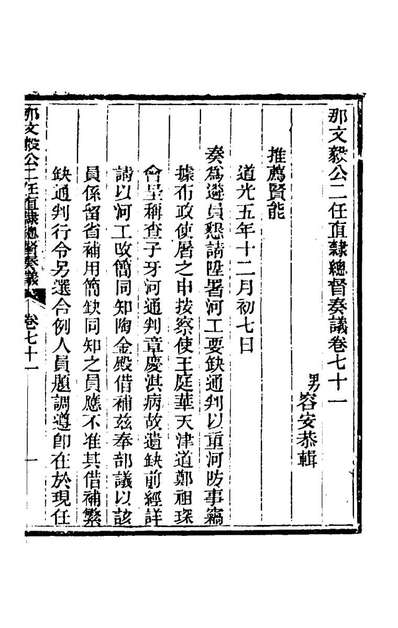 那文毅公二任直隸總督奏議卷七十一
男容安恭輯
推薦賢能
道光五年十二月初七日
奏為遴員懇請陞署河工要缺通判以重河防事竊
據布政使屠之申按察使王庭華天津道鄭祖琛
會呈稱查子牙河通判章慶淇病故遺缺前經詳
請以河工改簡同知陶金殿借補茲奉部議以該
員係留省補用簡缺同知之員應不准其借補繁
缺通判行令另選合例人員題調遵即在於現任
那文毅公二任直隸總督奏議 卷七十一 一